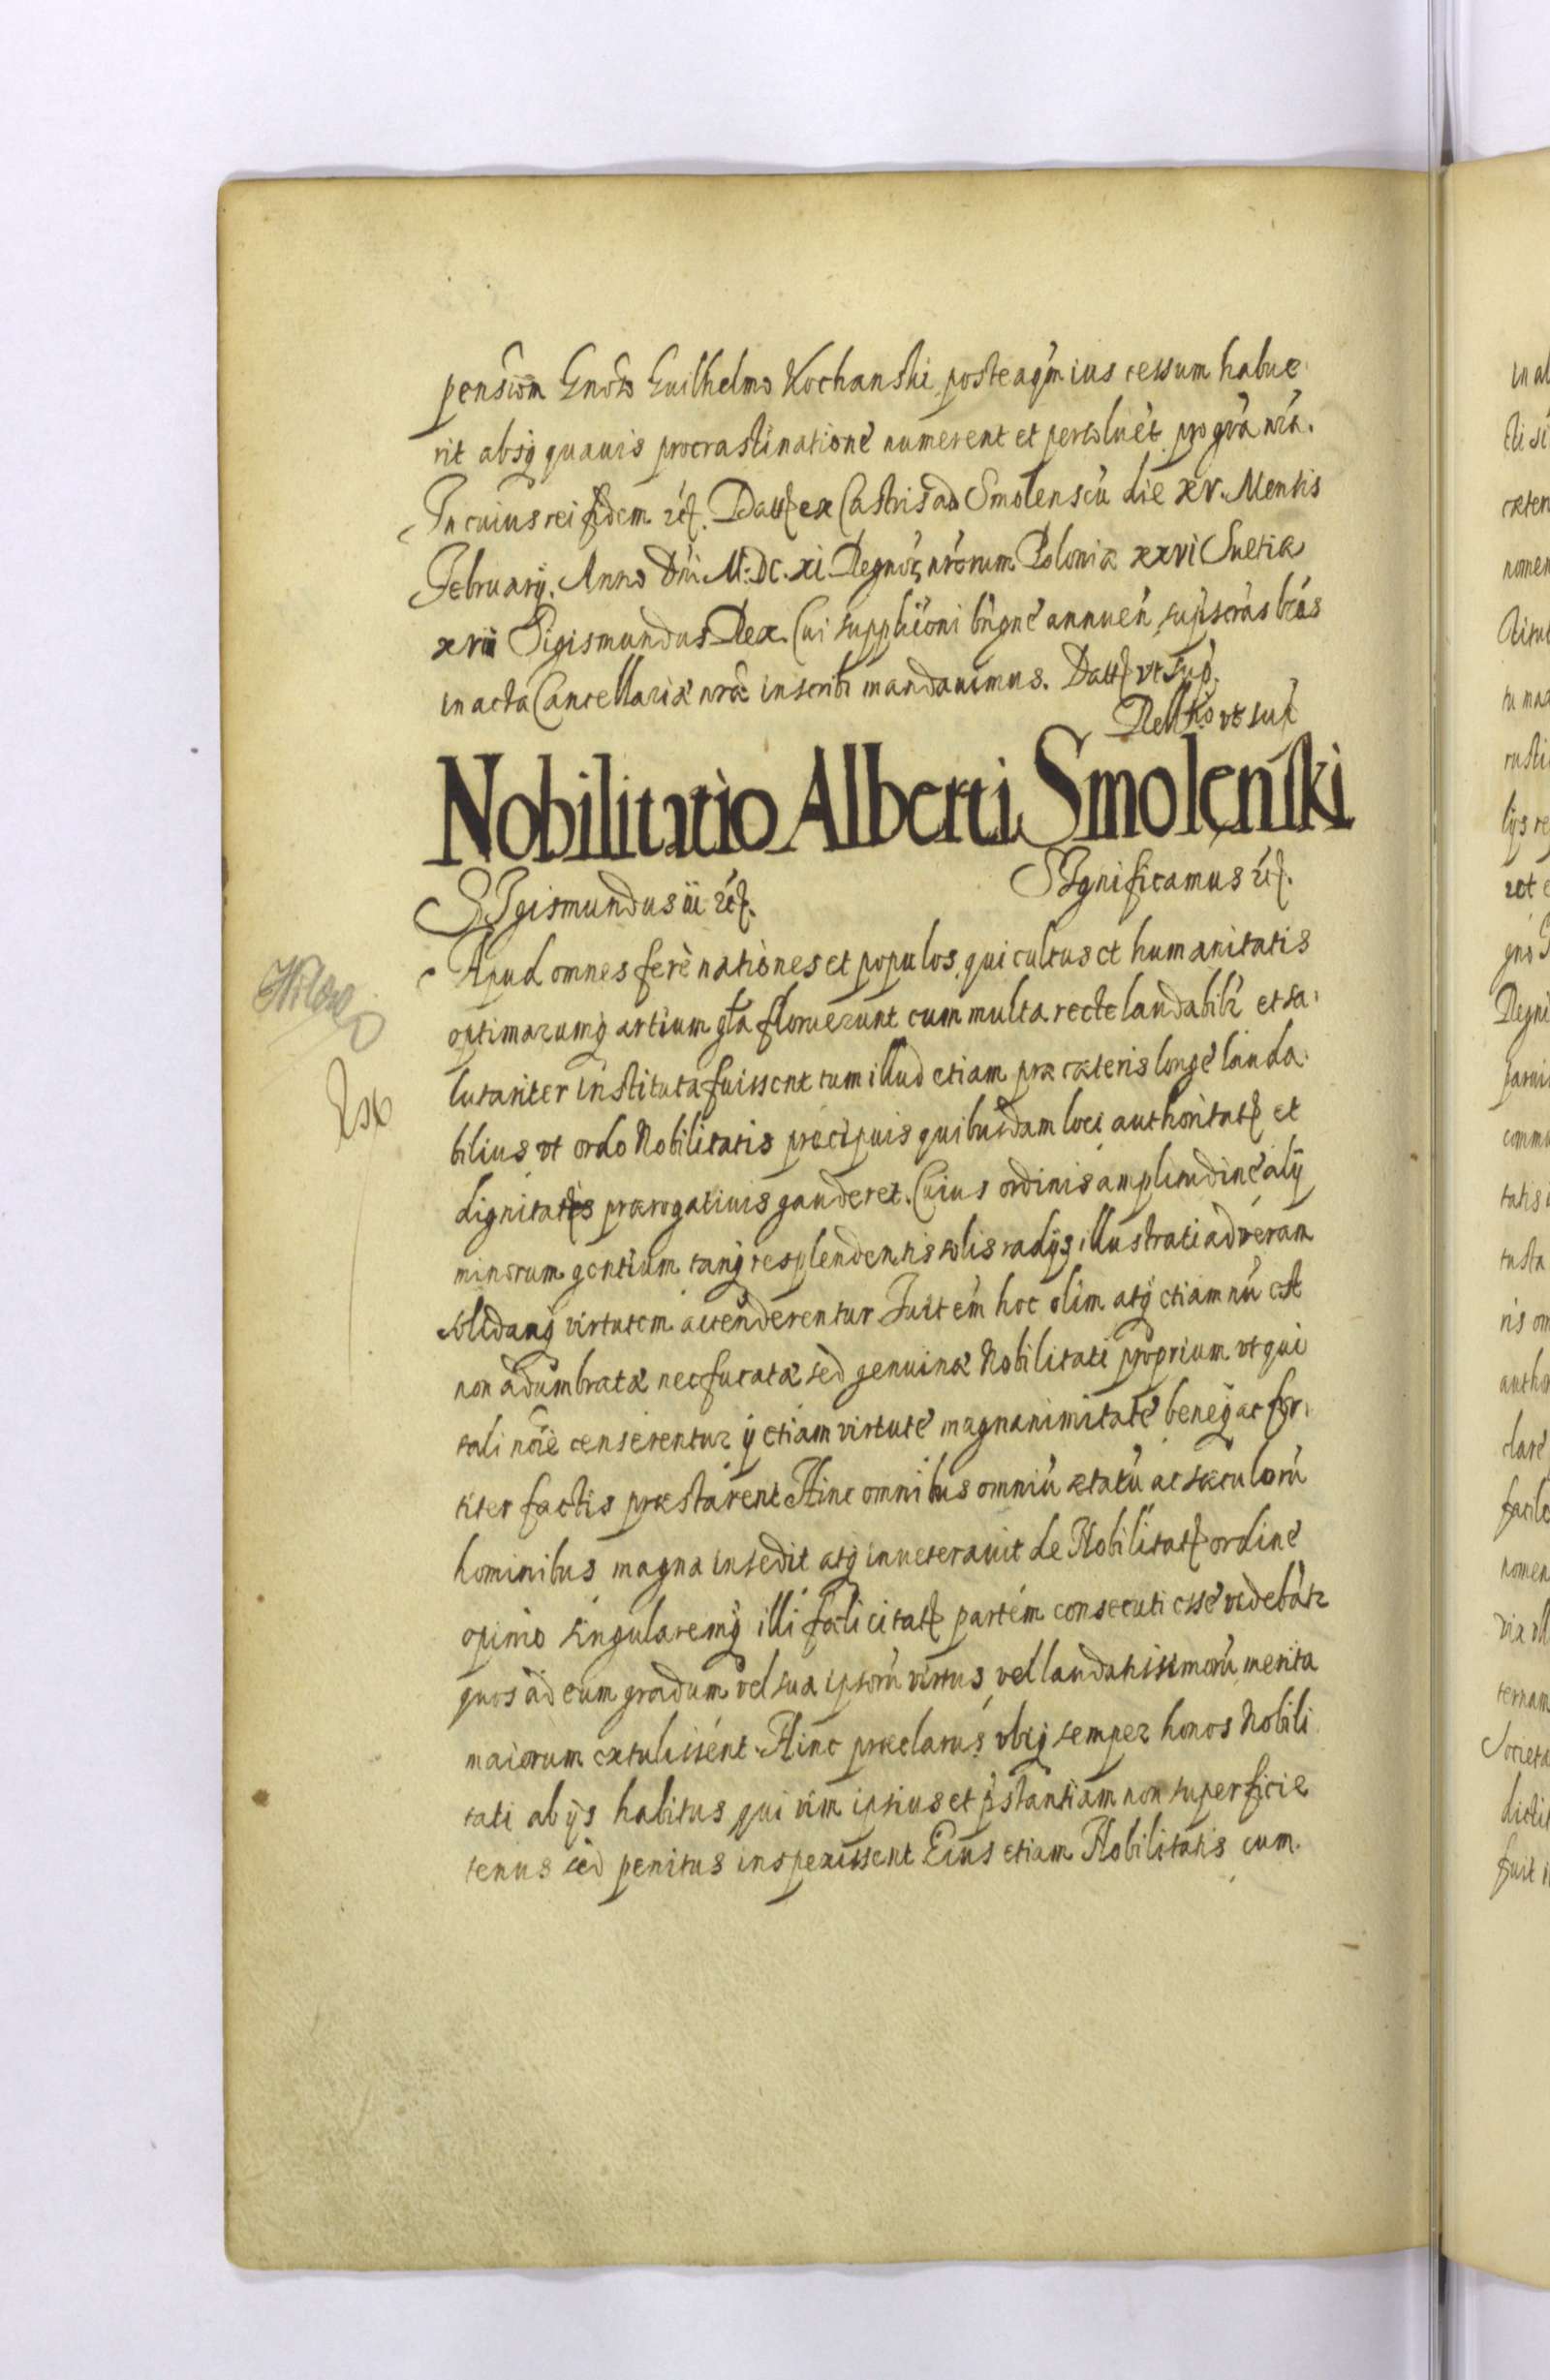 pensiõm Gnõso Guilhelmo Kochanski posteaq̃m ius cessum habue
rit absq̃ quauis procrastinatione numerent et persoluẽt pro gr̃a nr̃a.
In cuius rei fidem etc̃. Datt ex Castris ad Smolenscũ die xv. Mensis
February. Anno Dñi M: DC. xi Regnoꝝ nr̃orum Poloniæ xxvi Suetiæ
xvii Sigismundus Rex. Cui supplicõni bñgne annueñ supscr̃as lr̃as
in acta Cancellariæ nr̃æ inscribi mandauimus. Datt vt sup̃.
Rello vt sup̃
Nobilitatio Alberti Smolenski
SIgismundus iii etc̃.
SIgnificamus etc̃.
Apud omnes ferè nationes et populos, qui cultus et humanitatis
optimarumq̃ artium gl̃a floruerunt cum multa recte laudabilr̃ et sa
lutariter instituta fuissent tum illud etiam præ cæteris longe lauda
bilius vt ordo Nobilitatis præcipuis quibusdam loci authoritatꝭ et
dignitatis prærogatiuis gauderet. Cuius ordinis amplitudine alij
minorum gentium tanq̃ resplendentis solis radijs illustrati ad veram
solidamq̃ virtutem accenderentur Fuit em̃ hoc olim atq̃ etiam nũ est
non adumbratæ nec fucatæ sed genuinæ Nobilitati proprium vt qui
tali nõie censerentur ij etiam virtute magnanimitate beneq̃ ac for
titer factis præstarent Hinc omnibus omniũ ætatũ ac sæculorũ
hominibus magna insedit atq̃ inueterauit de Nobilitatꝭ ordine
opinio singularemq̃ illi fælicitatꝭ partem consecuti esse videbãtr
quos ad eum gradum vel sua ipsorũ virtus, vel laudatissimorũ merita
maiorum extulissent. Hinc præclarus vbiq̃ semper honos Nobili
tati ab ijs habitus qui vim ipsius et p̃stantiam non superficie
tenus sed penitus inspexissent Eius etiam Nobilitatis cum